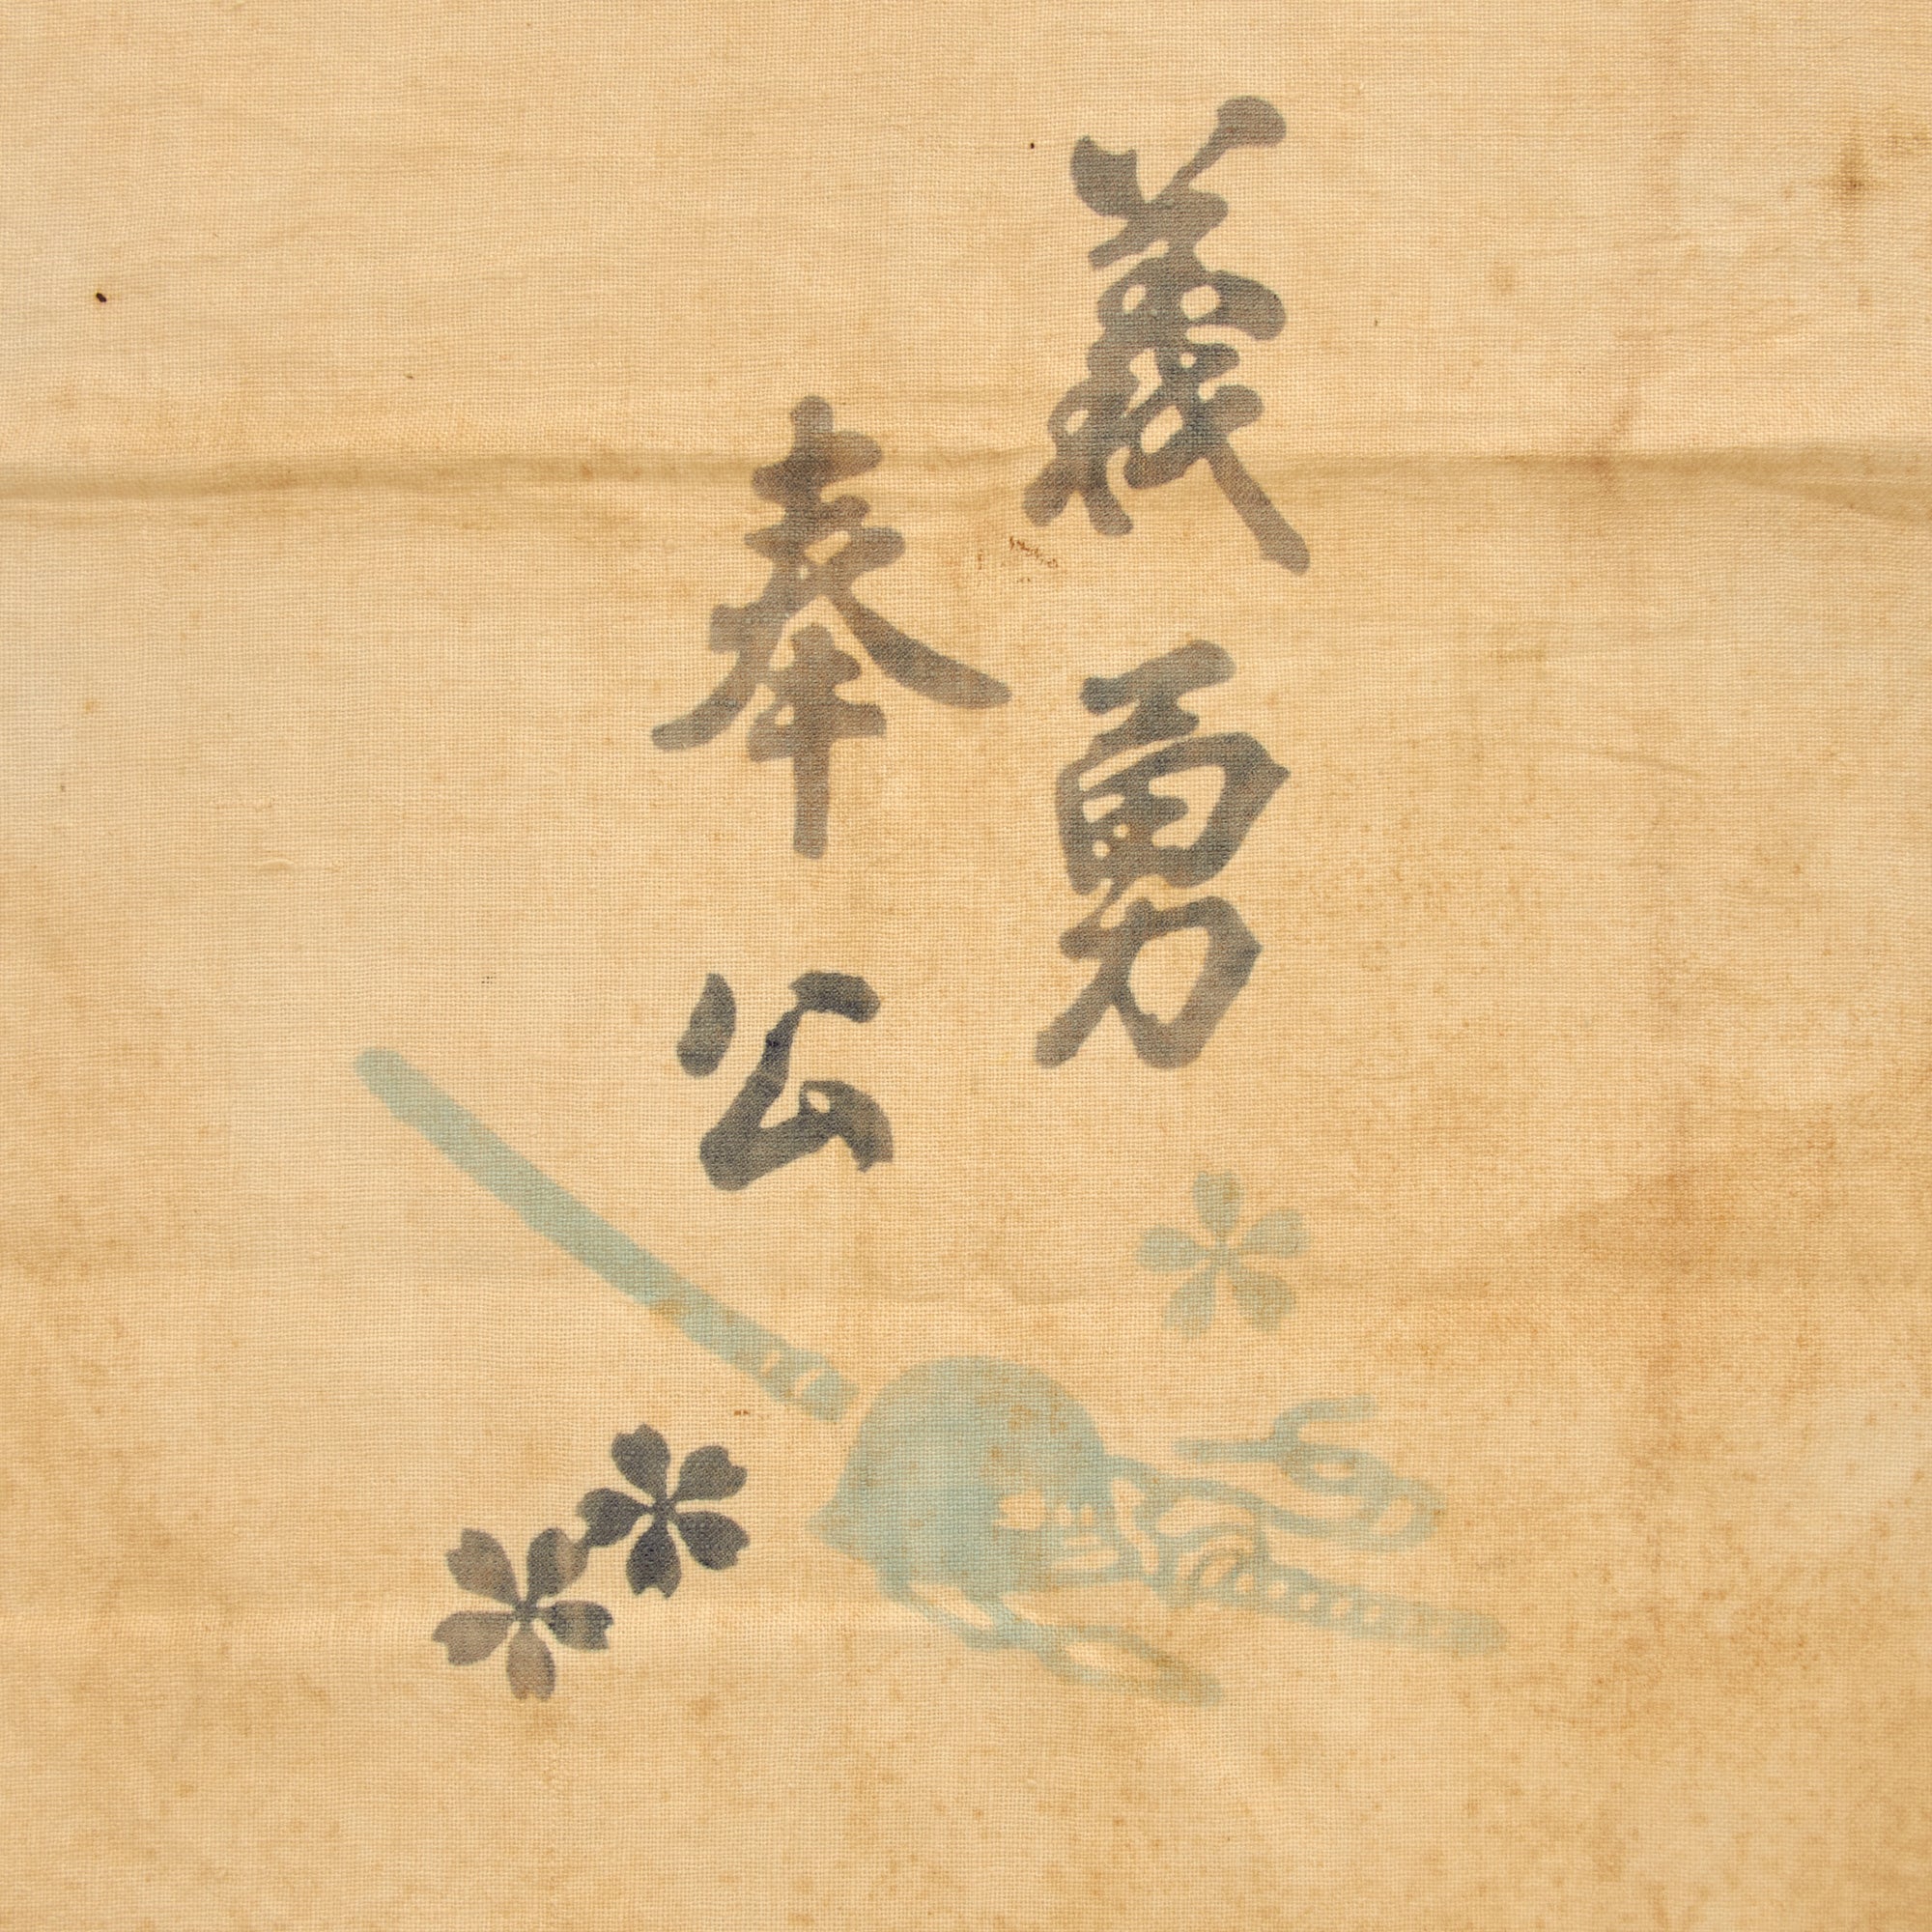 義勇
奉公